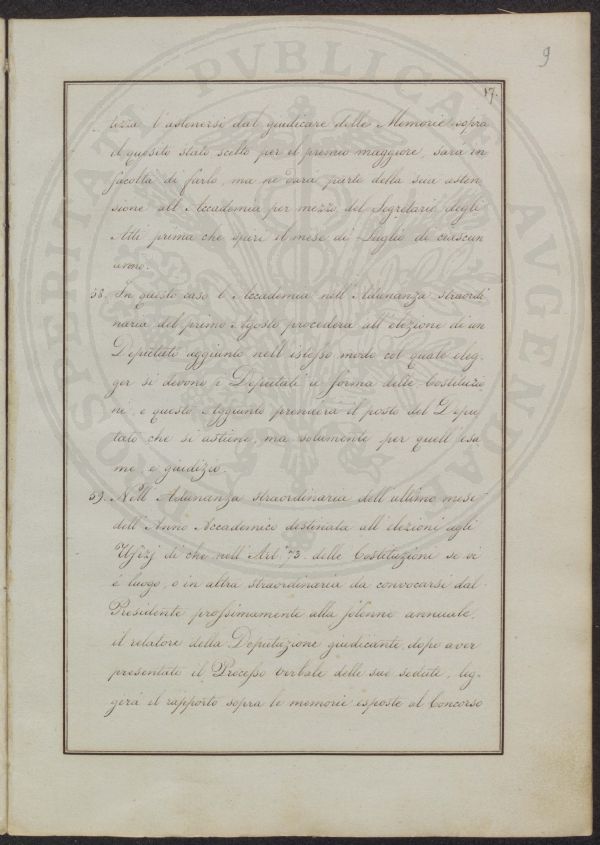 9
17.
tezza l'astenersi dal giudicare delle Memorie sopra
il quesito stato scelto per il premio maggiore, sarà in
facoltà di farlo, ma ne darà parte della sua asten
sione all'Accademia per mezzo del Segretario degli
Atti prima che spiri il mese di Luglio di ciascun
anno.
58. In questo caso l'Accademia nell'Adunanza straordi
naria del primo Agosto procederà all'elezione di un
Deputato aggiunto nell'istesso modo col quale eleg-
ger si devono i Deputati a forma delle Costituzio
ni, e questo Aggiunto prenderà il posto del Depu
tato che si astiene, ma solamente per quell'esa
me, e giudizio.
59. Nell'Adunanza straordinaria dell'ultimo mese
dell'Anno Accademico destinata all'elezioni agli
Ufizj di che nell'Art.° 73. delle Costituzioni se vi
è luogo, o in altra straordinaria da convocarsi dal
Presidente prossimamente alla solenne annuale,
il relatore della Deputazione giudicante, dopo aver
presentati il Processo verbale delle sue sedute, leg-
gerà il rapporto sopra le memorie esposte al Concorso
PROSPERITATI PVBLICAE AVGENDAE